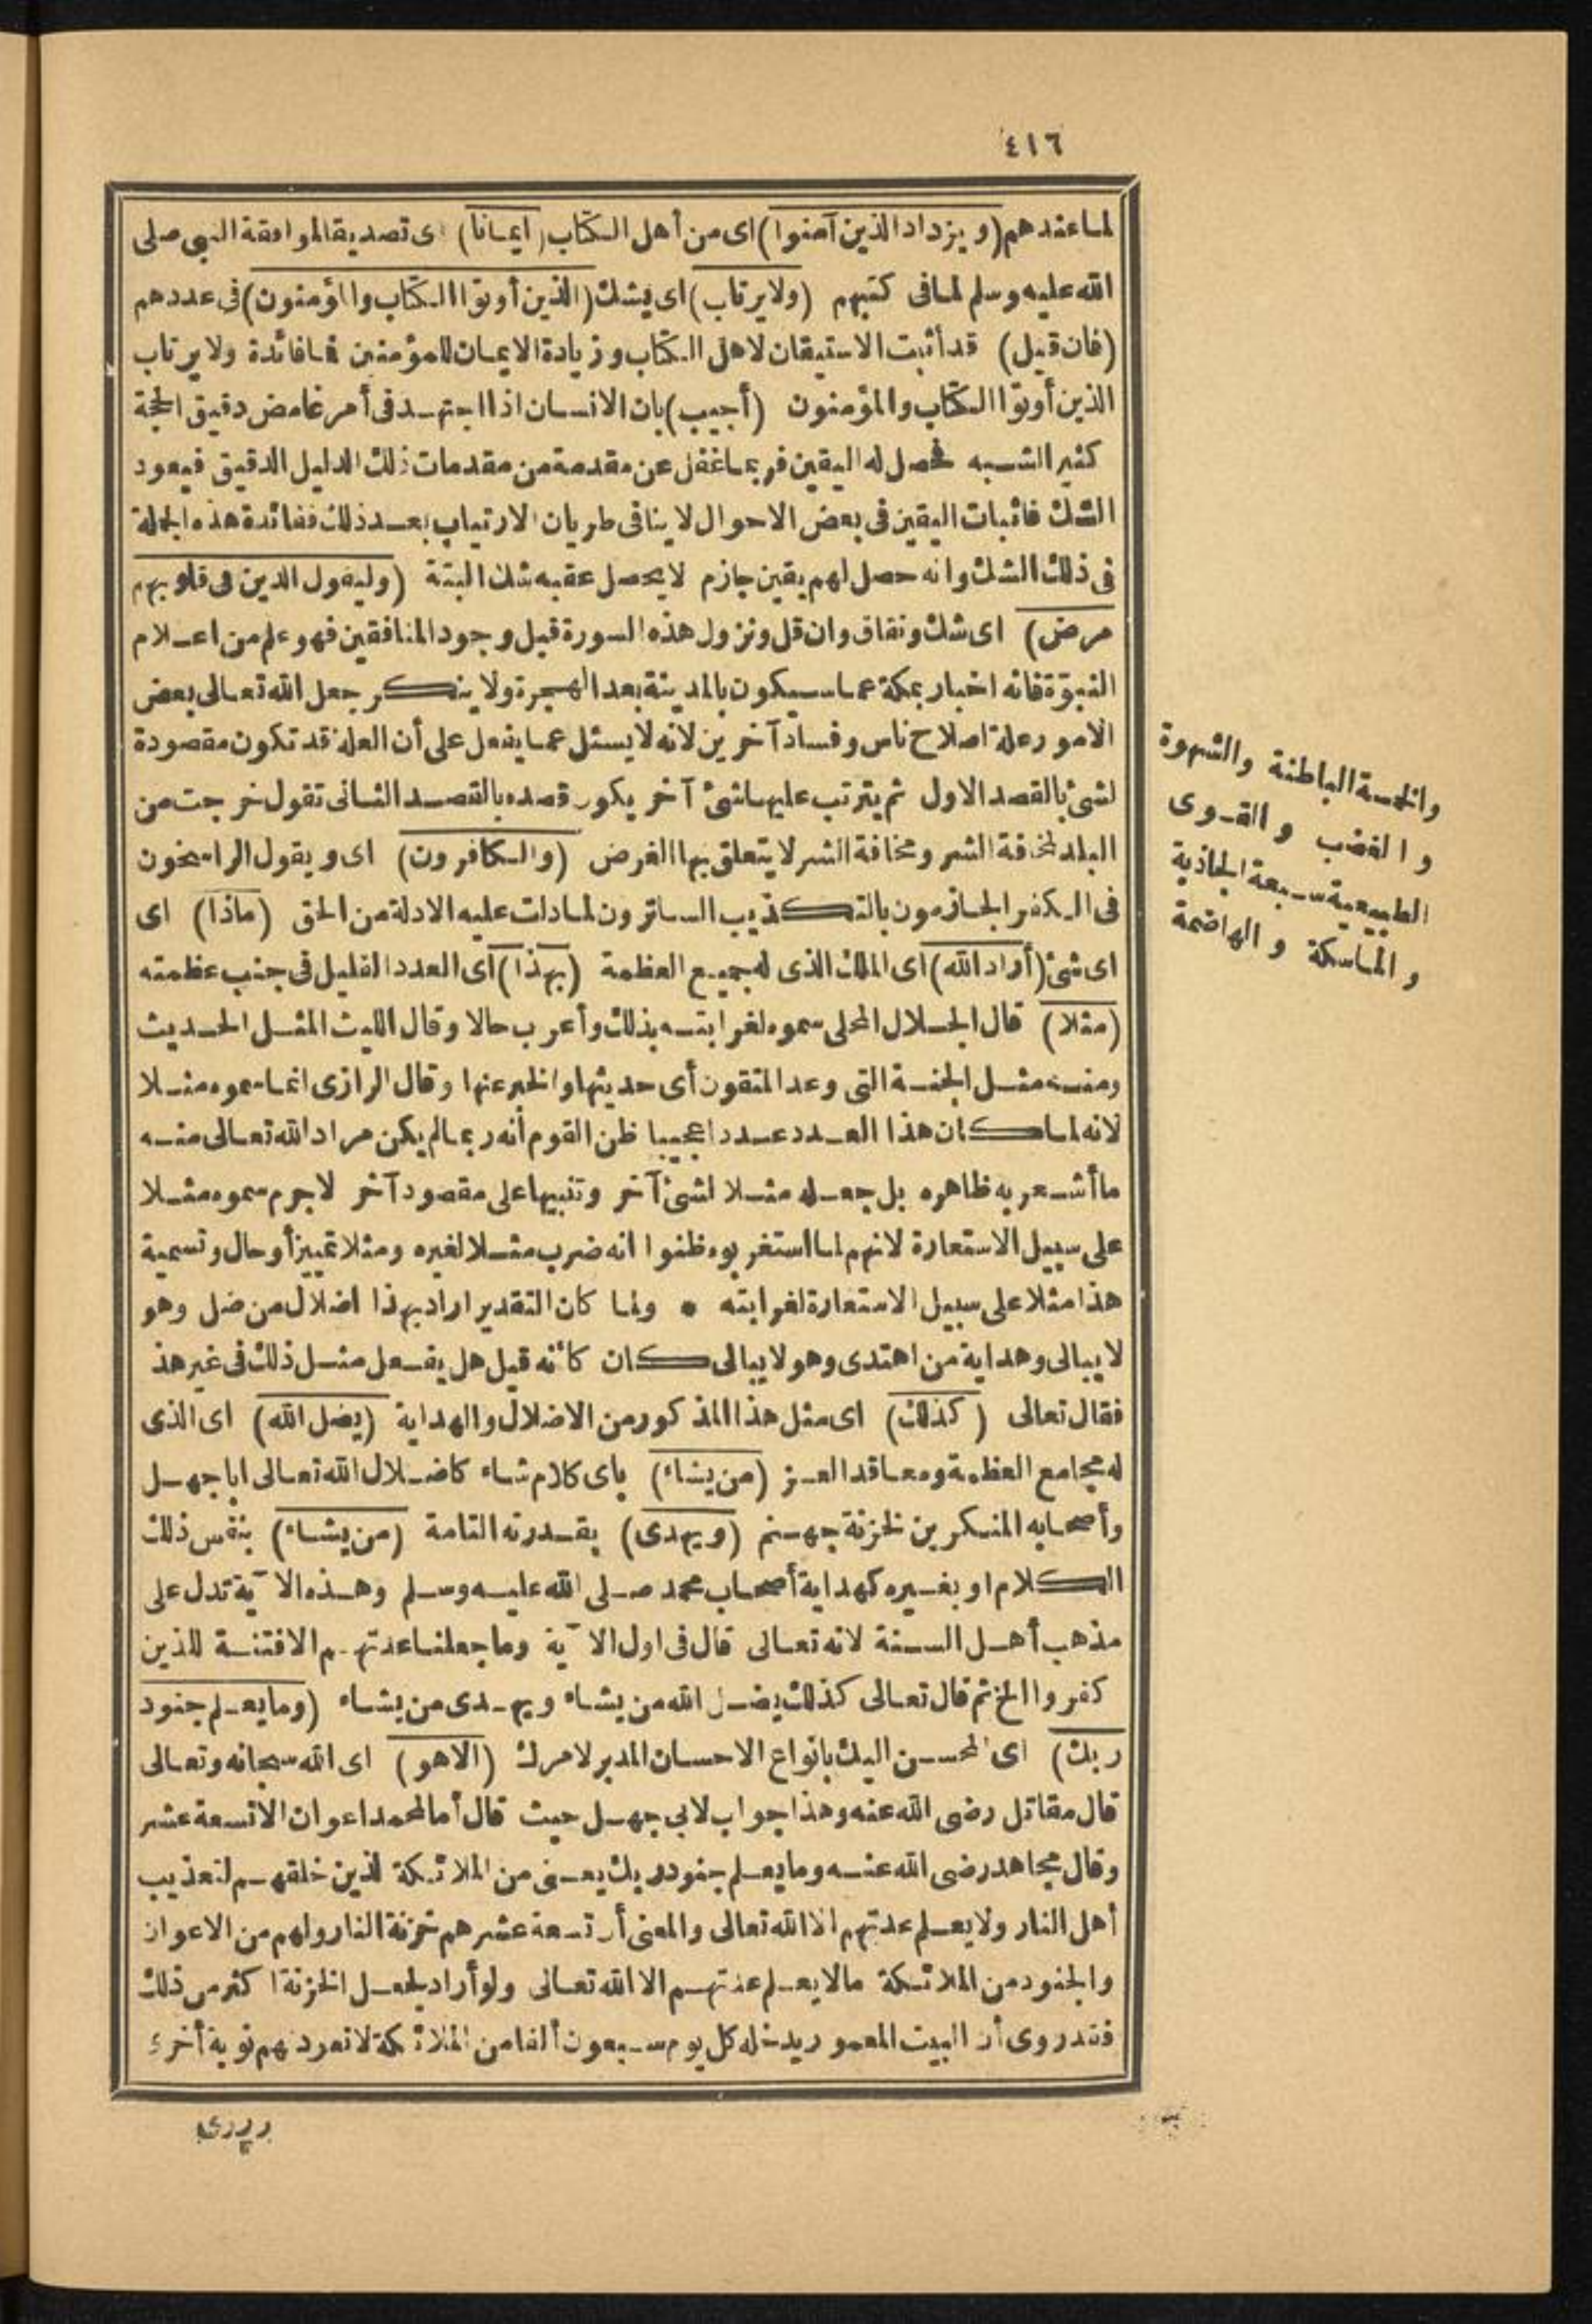 ٤١٦
لما عندهم (ويزداد الذين آمنوا) اى من أهل الكتاب (ايمانا) اى تصديقا لموافقة النبى صلى
الله عليه وسلم لما فى كتبهم (ولا يرتاب) اى يشك (الذين أوتوا الكتاب والمؤمنون) فى عددهم
(فان قيل) قد أثبت الاستيقان لاهل الكتاب وزيادة الايمان للمؤمنين فما فائدة ولا يرتاب
الذين أوتوا الكتاب والمؤمنون (أجيب) بان الانسان اذا اجتهد فى أمر غامض دقيق الحجة
كثير الشبه فحصل له اليقين فربما غفل عن مقدمة من مقدمات ذلك الدليل الدقيق فيعود
الشك فاثبات اليقين فى بعض الاحوال لا ينافى طريان الارتياب بعد ذلك ففائدة هذه الجملة
فى ذلك الشك وانه حصل لهم يقين جازم لا يحصل عقبه شك البتة (وليقول الذين فى قلوبهم
مرض) اى شك ونفاق وان قل ونزول هذه السورة قبل وجود المنافقين فهو علم من اعلام
النبوّة فانه اخبار بمكة عما سيكون بالمدينة بعد الهجرة ولا ينكر جعل الله تعالى بعض
الامور علة اصلاح ناس وفساد آخرين لانه لا يسئل عما يفعل على أن العلة قد تكون مقصودة
لشئ بالقصد الاول ثم يترتب عليها شئ آخر يكون قصده بالقصد الثانى تقول خرجت من
البلد لمخافة الشر ومخافة الشر لا يتعلق بها الغرض (والكافرون) اى ويقول الراسخون
فى الكفر الجازمون بالتكذيب الساترون لما دلت عليه الادلة من الحق (ماذا) اى
اى شئ (أراد الله) اى الملك الذى له جميع العظمة (بهذا) أى العدد القليل فى جنب عظمته
(مثلا) قال الجلال المحلى سموه لغرابته بذلك وأعرب حالا وقال الليث المثل الحديث
ومنه مثل الجنة التى وعد المتقون أى حديثها والخبر عنها وقال الرازى انما سموه مثلا
لانه لما كان هذا العدد عددا عجيبا ظن القوم أنه ربما لم يكن مراد الله تعالى منه
ما أشعر به ظاهره بل جعله مثلا لشئ آخر وتنبيها على مقصود آخر لا جرم سموه مثلا
على سبيل الاستعارة لانهم لما استغربوه ظنوا انه ضرب مثلا لغيره ومثلا تمييز أو حال وتسمية
هذا مثلا على سبيل الاستعارة لغرابته • ولما كان التقدير اراد بهذا اضلال من ضل وهو
لا يبالى وهداية من اهتدى وهو لا يبالى كان كأنه قيل هل يفعل مثل ذلك فى غير هذ
فقال تعالى (كذلك) اى مثل هذا المذكور من الاضلال والهداية (يضل الله) اى الذى
له مجامع العظمة ومعاقد العز (من يشاء) باى كلام شاء كاضلال الله تعالى ابا جهل
وأصحابه المنكرين لخزنة جهنم (ويهدى) بقدرته التامة (من يشاء) بنفس ذلك
الكلام او بغيره كهداية أصحاب محمد صلى الله عليه وسلم وهذه الآية تدل على
مذهب أهل السنة لانه تعالى قال فى اول الآية وما جعلنا عدتهم الا فتنة للذين
كفروا الخ ثم قال تعالى كذلك يضل الله من يشاء ويهدى من يشاء (وما يعلم جنود
ربك) اى المحسن اليك بانواع الاحسان المدبر لامرك (الا هو) اى الله سبحانه وتعالى
قال مقاتل رضى الله عنه وهذا جواب لابى جهل حيث قال أما لمحمد اعوان الا تسعة عشر
وقال مجاهد رضى الله عنه وما يعلم جنود ربك يعنى من الملائكة الذين خلقهم لتعذيب
أهل النار ولا يعلم عدتهم الا الله تعالى والمعنى أن تسعة عشر هم خزنة النار ولهم من الاعوان
والجنود من الملائكة مالا يعلم عدتهم الا الله تعالى ولو أراد لجعل الخزنة اكثر من ذلك
فقد روى أن البيت المعمور يدخله كل يوم سبعون ألفا من الملائكة لا تعود لهم نوبة أخرى
والخمسة الباطنة والشهوة
والغضب والقوى
الطبيعية سبعة الجاذبة
والماسكة والهاضمة